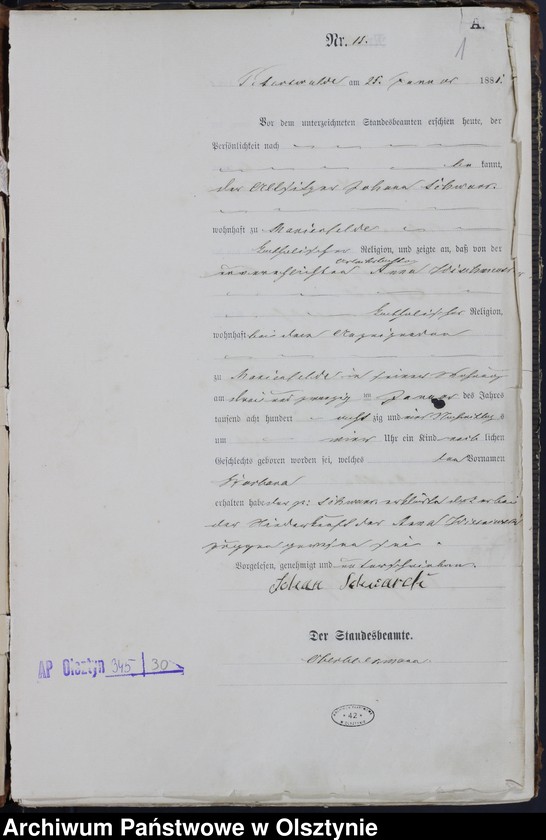 A.
1
Nr. 11.
am 25. Januar 1881.
Vor dem unterzeichneten Standesbeamten erschien heute, der
Persönlichkeit nach
be kannt,
der Altsitzer Johann Schwarz
wohnhaft zu Marienfelde
katholischer Religion, und zeigte an, daß von der
unverehelichten Anna
katholischer Religion,
wohnhaft bei dem
zu Marienfelde in seiner Wohnung
am drei und zwanzig ten Januar des Jahres
tausend acht hundert acht zig und eins Nachmittags
um vier Uhr ein Kind weib lichen
Geschlechts geboren worden sei, welches den Vornamen
Barbara
erhalten habe der p: Schwarz erklärte daß er bei
der Niederkunft der Anna
zugegen gewesen sei.
Vorgelesen, genehmigt und unterschrieben.
Johan Schwarck
Der Standesbeamte.
AP Olsztyn 345 / 30
42
Archiwum Państwowe w Olsztynie